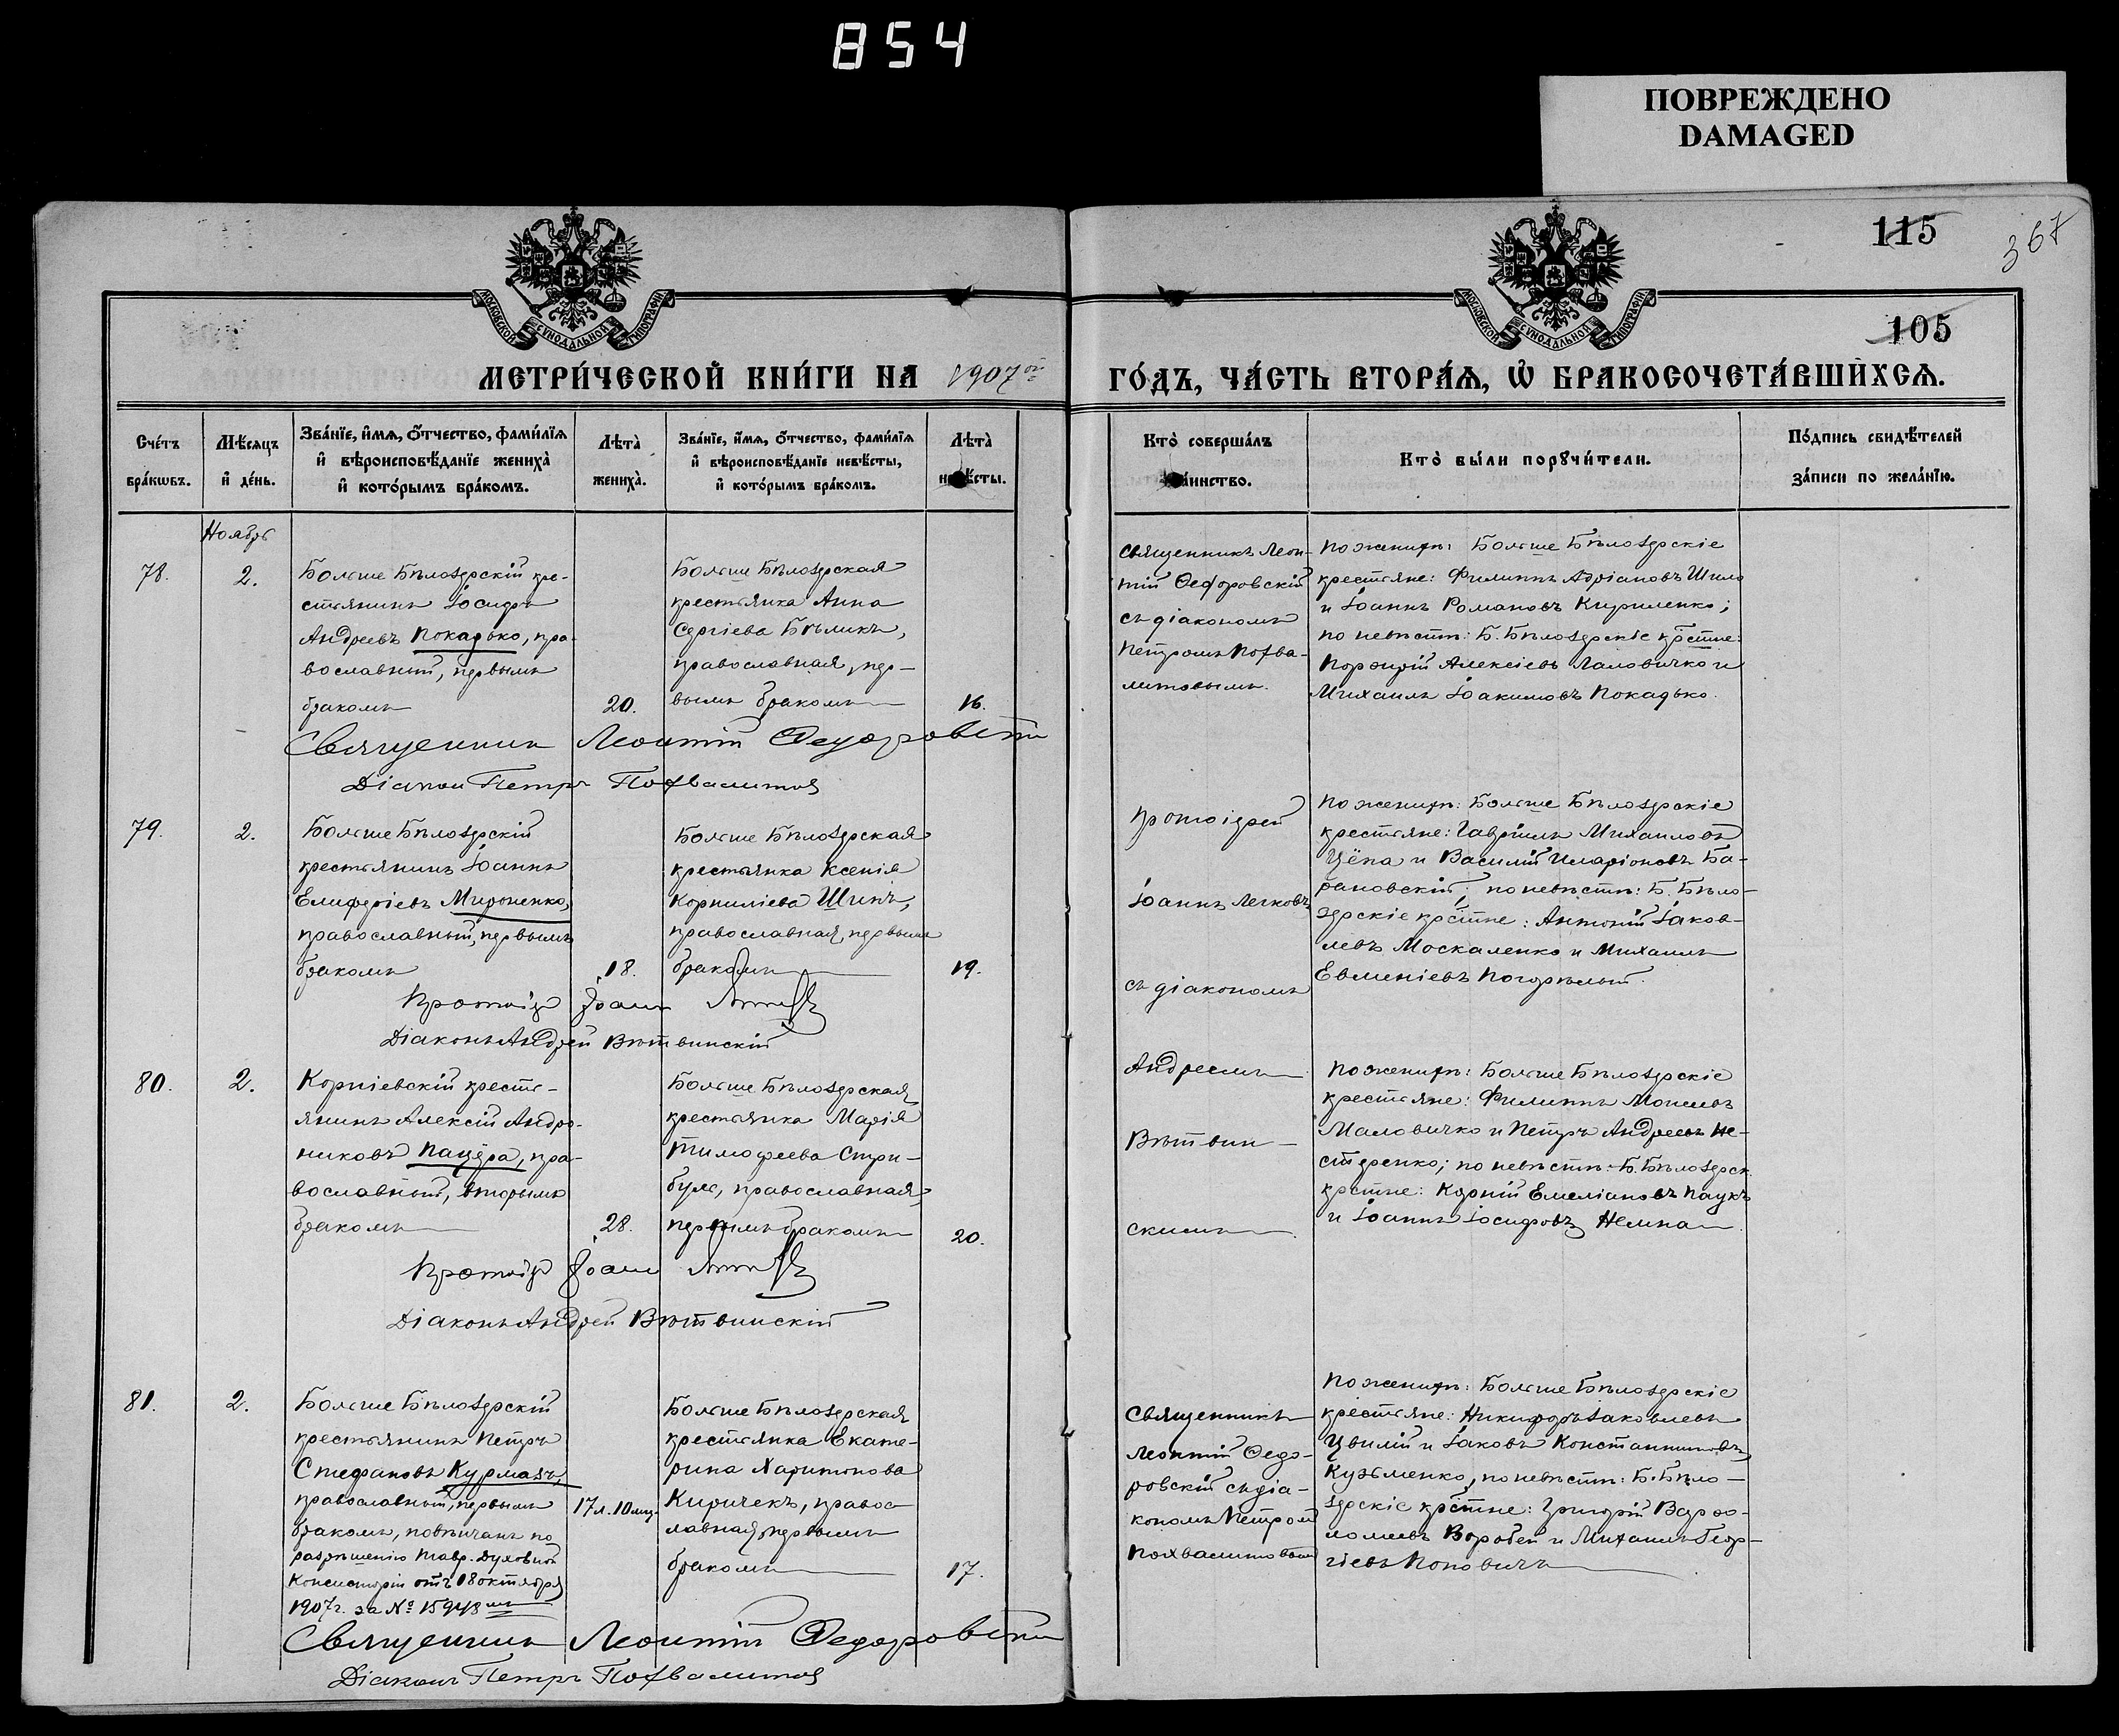 854
ПОВРЕЖДЕНО
DAMAGED
115
367
105
МОСКОВСКОЙ СѴНОДАЛЬНОЙ ТИПОГРАФІИ
МОСКОВСКОЙ СѴНОДАЛЬНОЙ ТИПОГРАФІИ
МЕТРИ́ЧЕСКОЙ КНИ́ГИ НА 1907ой ГО́ДЪ, ЧА́СТЬ ВТОРА́Ѧ, Ѡ҆ БРАКОСОЧЕТА́ВШИХСѦ.
Сче́тъ бра́кѡвъ.
Мѣ́сѧцъ и҆ де́нь.
Зва́нїе, и҆́мѧ, ѻ҆́тчество, фами́лїѧ
и҆ вѣроисповѣ́данїе жениха̀
и҆ кото́рымъ бра́комъ.
Лѣта̀ жениха̀.
Зва́нїе, и҆́мѧ, ѻ҆́тчество, фами́лїѧ
и҆ вѣроисповѣ́данїе невѣ́сты,
и҆ кото́рымъ бра́комъ.
Лѣта̀ невѣ́сты.
Кто̀ соверша́лъ
та́инство.
Кто̀ бы́ли порꙋчи́тели.
По́дпись свидѣ́телей
за́писи по жела́нїю.
Ноябрь
78.
2.
Больше Бѣлозерскій кре-
стьянинъ Іосифъ
Андреевъ Покадько, пра-
вославный, первымъ
бракомъ
20.
Больше Бѣлозерская
крестьянка Анна
Сергіева Бѣликъ,
православная, пер-
вымъ бракомъ
16.
Священникъ Леон-
тій Федоровскій
съ діакономъ
Петромъ Похва-
литовымъ.
По женихѣ: Больше Бѣлозерскіе
крестьяне: Филиппъ Адріановъ Шило
и Іоаннъ Романовъ Кириленко;
по невѣстѣ: Б. Бѣлозерскіе крестне:
Порфирій Алексіевъ Маловичко и
Михаилъ Іоакимовъ Покадько.
Священникъ Леонтій Федоровскій
Діаконъ Петръ Похвалитовъ
79.
2.
Больше Бѣлозерскій
крестьянинъ Іоаннъ
Елиферіевъ Мироненко,
православный, первымъ
бракомъ
18.
Больше Бѣлозерская
крестьянка Ксенія
Корниліева Шикъ,
православная, первымъ
бракомъ
19.
Протоіерей
Іоаннъ Легковъ
съ діакономъ
Андреемъ
Вѣтвин-
скимъ
По женихѣ: Больше Бѣлозерскіе
крестьяне: Гавріилъ Михаиловъ
Цёпа и Василій Иларіоновъ Ба-
рановскій; по невѣстѣ: Б. Бѣло-
зерскіе крстне: Антоній Іаков-
левъ Москаленко и Михаилъ
Евменіевъ Погорѣлый.
Протоіер Іоанн
Діаконъ Андрей Вѣтвинскій
80.
2.
Корніевскій кресть-
янинъ Алексій Андро-
никовъ Пацёра, пра-
вославный, вторымъ
бракомъ
28.
Больше Бѣлозерская
крестьянка Марія
Тимофеева Стри-
буль, православная,
первымъ бракомъ
20.
По женихѣ: Больше Бѣлозерскіе
крестьяне: Филиппъ Моисеевъ
Маловичко и Петръ Андреевъ Не-
стеренко; по невѣстѣ: Б. Бѣлозерск.
крстне: Корній Емеліановъ Паукъ
и Іоаннъ Іосифовъ Немна
Протоіер Іоанн
Діаконъ Андрей Вѣтвинскій
81.
2.
Больше Бѣлозерскій
крестьянинъ Петръ
Стефановъ Курмазъ,
православный, первымъ
бракомъ, повѣнчанъ по
разрѣшенію Тавр. Духовной
Консисторіи отъ 18 октября
1907 г. за № 15948мъ
17 л. 10 мц.
Больше Бѣлозерская
крестьянка Екате-
рина Харитонова
Киричекъ, правос-
лавная, первымъ
бракомъ
17.
Священникъ
Леонтій Федо-
ровскій съ діа-
кономъ Петромъ
Похвалитовым
По женихѣ: Больше Бѣлозерскіе
крестьяне: Никифоръ Іаковлевъ
Цвилій и Іаковъ Константиновъ
Кузьменко, по невѣстѣ: Б. Бѣло-
зерскіе крстне: Григорій Варфо-
ломеевъ Воробей и Михаилъ Геор-
гіевъ Поповичъ
Священникъ Леонтій Федоровскій
Діаконъ Петръ Похвалитовъ